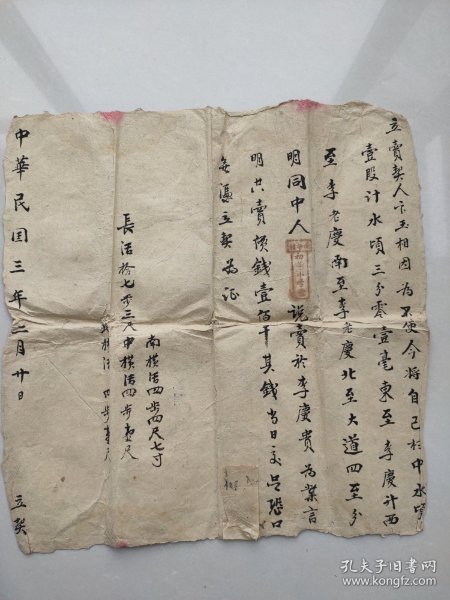 立賣契人卞玉相因為不便今將自己村中水坑
壹股計水頃三分零壹毫東至李慶計西
至李老慶南至李老慶北至大道四至分
明同中人說賣於李慶貴為業言
明共賣價錢壹佰千其錢当日交足恐口
無憑立契為证
南横活四步四尺七寸
長活拾七步三尺中横活四步壹尺
北横活四步壹尺
中華民国三年二月廿日立契
孔夫子旧书网
www.kongfz.com